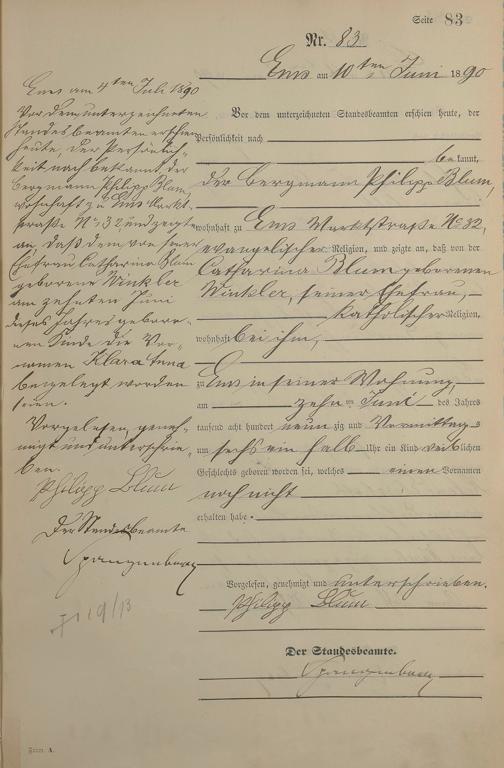 Seite 83
Nr. 83
Ems am 10ten Juni 1890
Vor dem unterzeichneten Standesbeamten erschien heute, der
Persönlichkeit nach
bekannt,
der Bergmann Philipp Blum,
wohnhaft zu Ems Marktstraße No 32,
evangelischer Religion, und zeigte an, daß von der
Catharina Blum geborenen
Winkler, seiner Ehefrau,
katholischer Religion,
wohnhaft bei ihm,
zu Ems in seiner Wohnung,
am zehnten Juni des Jahres
tausend acht hundert neunzig und Vormittags
um sechs ein halb Uhr ein Kind weiblichen
Geschlechts geboren worden sei, welches einen Vornamen
noch nicht
erhalten habe.
Vorgelesen, genehmigt und unterschrieben.
Philipp Blum
Der Standesbeamte.
Spangenberg
Ems am 4ten Juli 1890
Vor dem unterzeichneten
Standesbeamten erschien
heute, der Persönlich-
keit nach bekannt, der
Bergmann Philipp Blum,
wohnhaft zu Ems Markt-
straße No 32, und zeigte
an, daß dem von seiner
Ehefrau Catharina Blum
geborene Winkler
am zehnten Juni
dieses Jahres gebore-
nen Kinde die Vor-
namen Klara Anna
beigelegt worden
seien.
Vorgelesen, geneh-
migt und unterschrie-
ben.
Philipp Blum
Der Standesbeamte
Spangenberg
Form. A.